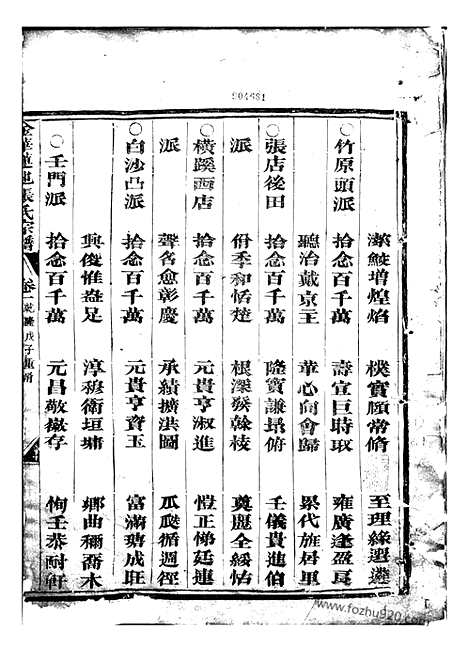 804681
潔鮫增煌焰 樸實願常脩 至理緣選
○竹原頭派 拾念百千萬 壽宣巨時取 雍廣逢盈
聽治戴京王 華心向會歸 累代旌居里
○張店後田 拾念百千萬 隆寶謙最俯 壬儀貴進伯
派 佾季和恬楚 根深發榦枝 奠麗全綏怙
○橫蹊西店 拾念百千萬 元貴亨淑進 愷正悌廷連
派 聲名愈彰慶 承績擴洪圖 瓜瓞循週徑
○白沙凸派 拾念百千萬 元貴亨齊玉 富滿瑭成旺
興俊惟益足 淳穆衛垣墉 鄉曲稱喬木
○壬門派 拾念百千萬 元昌敬嶽存 恂壬恭耐軒
金華蓮池張氏宗譜 卷一 乾隆戊子重脩
www.fozhu920.com